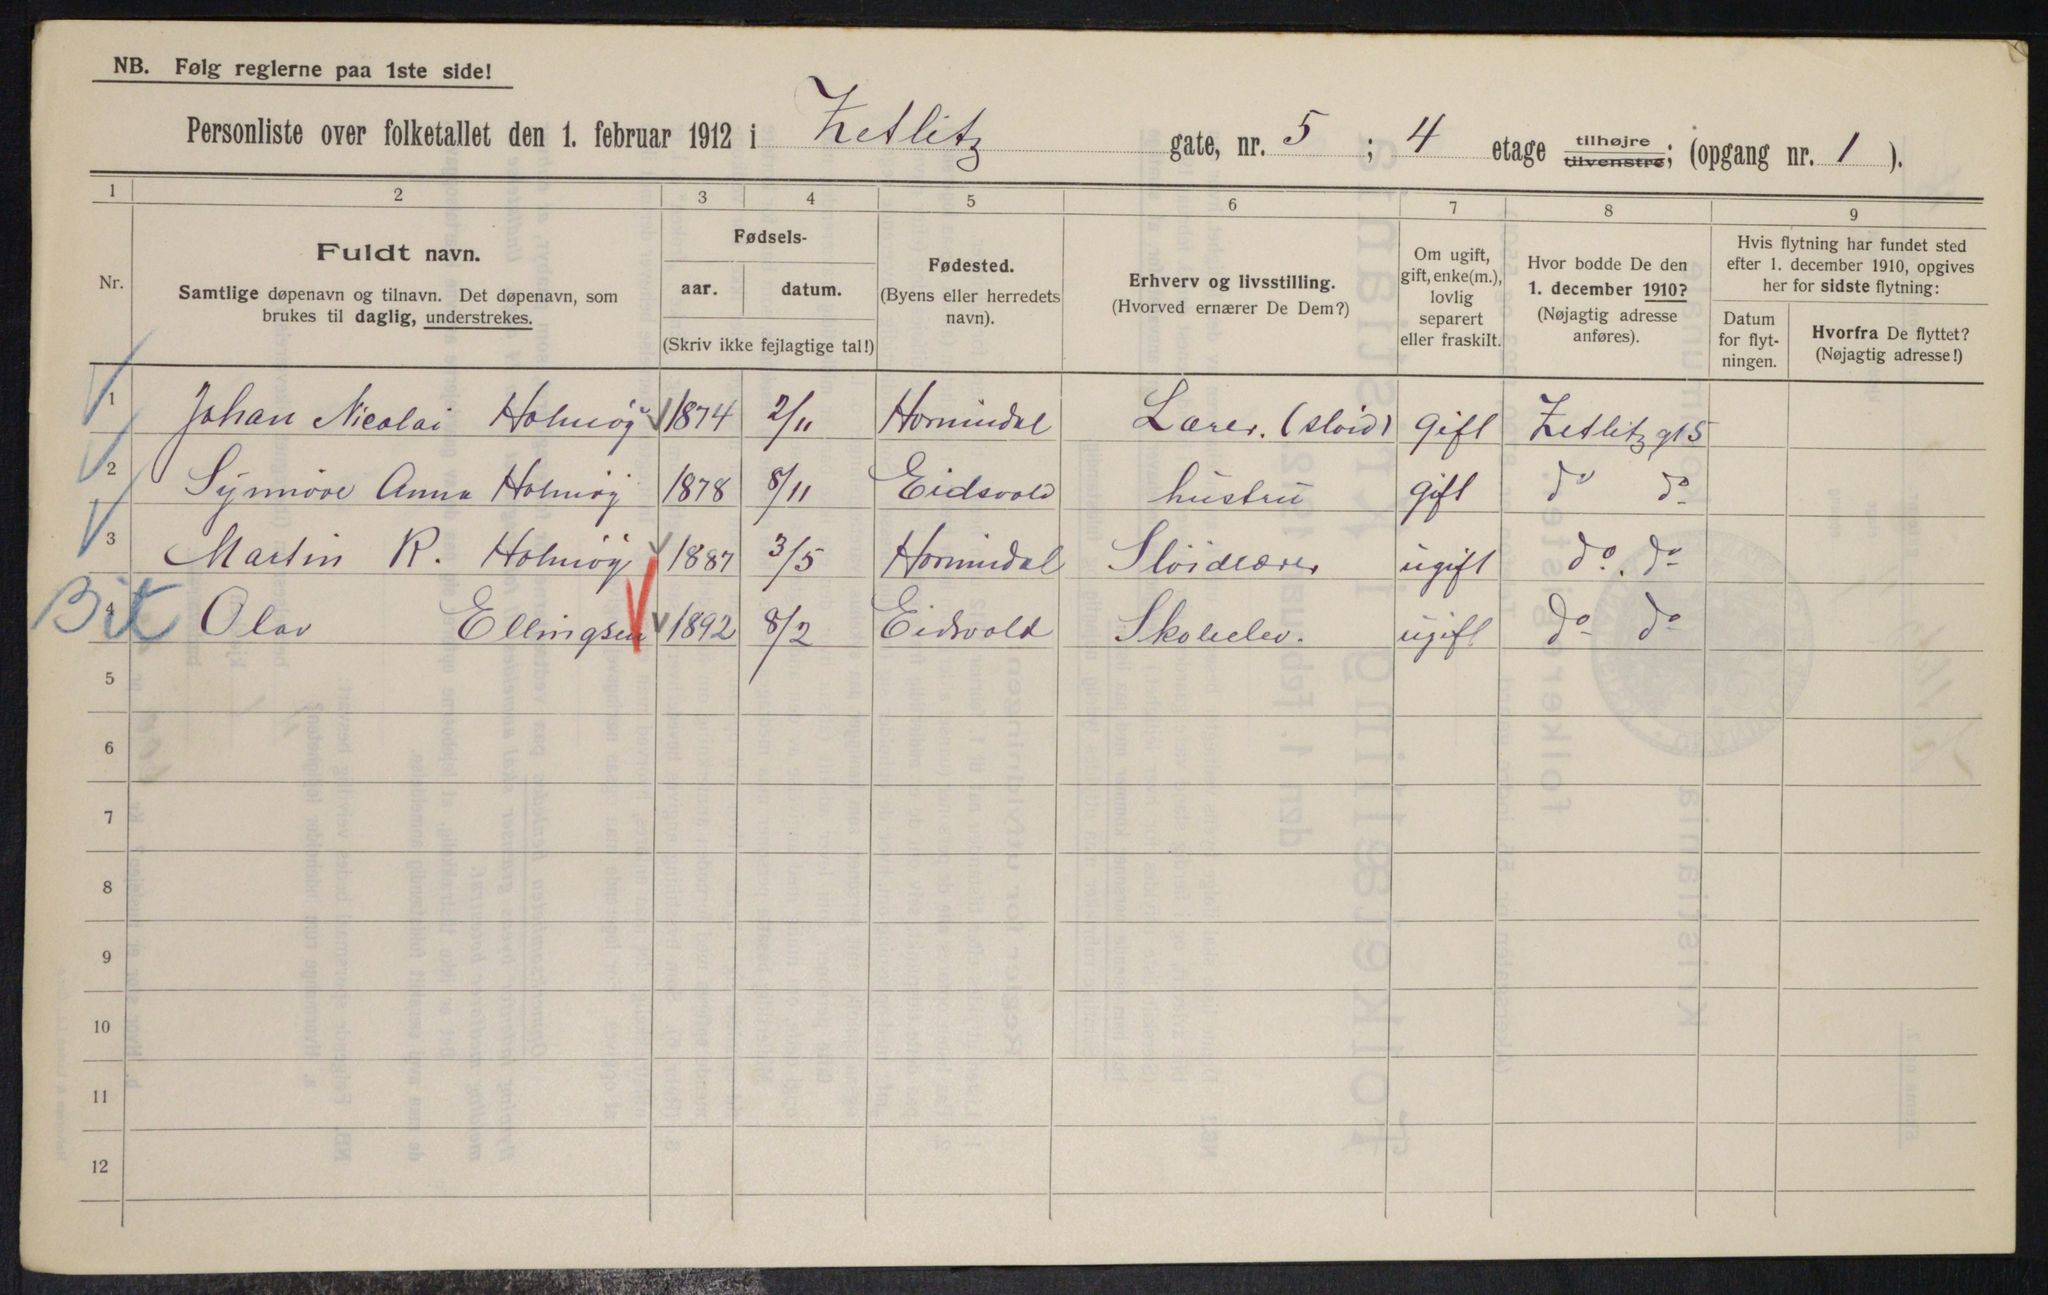 NB. Følg reglerne paa 1ste side!
Personliste over folketallet den 1. februar 1912 i Zetlitz gate, nr. 5 ; 4 etage tilhøjre tilvenstre; (opgang nr. 1 ).
1 2 3 4 5 6 7 8 9
Nr.
Fuldt navn.
Samtlige døpenavn og tilnavn. Det døpenavn, som
brukes til daglig, understrekes.
Fødsels-
aar. datum.
(Skriv ikke fejlagtige tal!)
Fødested.
(Byens eller herredets
navn).
Erhverv og livsstilling.
(Hvorved ernærer De Dem?)
Om ugift,
gift, enke(m.),
lovlig
separert
eller fraskilt.
Hvor bodde De den
1. december 1910?
(Nøjagtig adresse
anføres).
Hvis flytning har fundet sted
efter 1. december 1910, opgives
her for sidste flytning:
Datum
for flyt-
ningen.
Hvorfra De flyttet?
(Nøjagtig adresse!)
1 Johan Nicolai Holmøy 1874 2/11 Hornindal Lærer. (sløid) gift Zetlitz gt 5
2 Synnøve Anna Holmøy 1878 8/11 Eidsvold hustru gift do do
3 Martin R. Holmøy 1887 3/5 Hornindal Sløidlærer ugift do. do
Bit 4 Olav Ellingsen 1892 8/2 Eidsvold Skoleelev. ugift do do
5
6
7
8
9
10
11
12